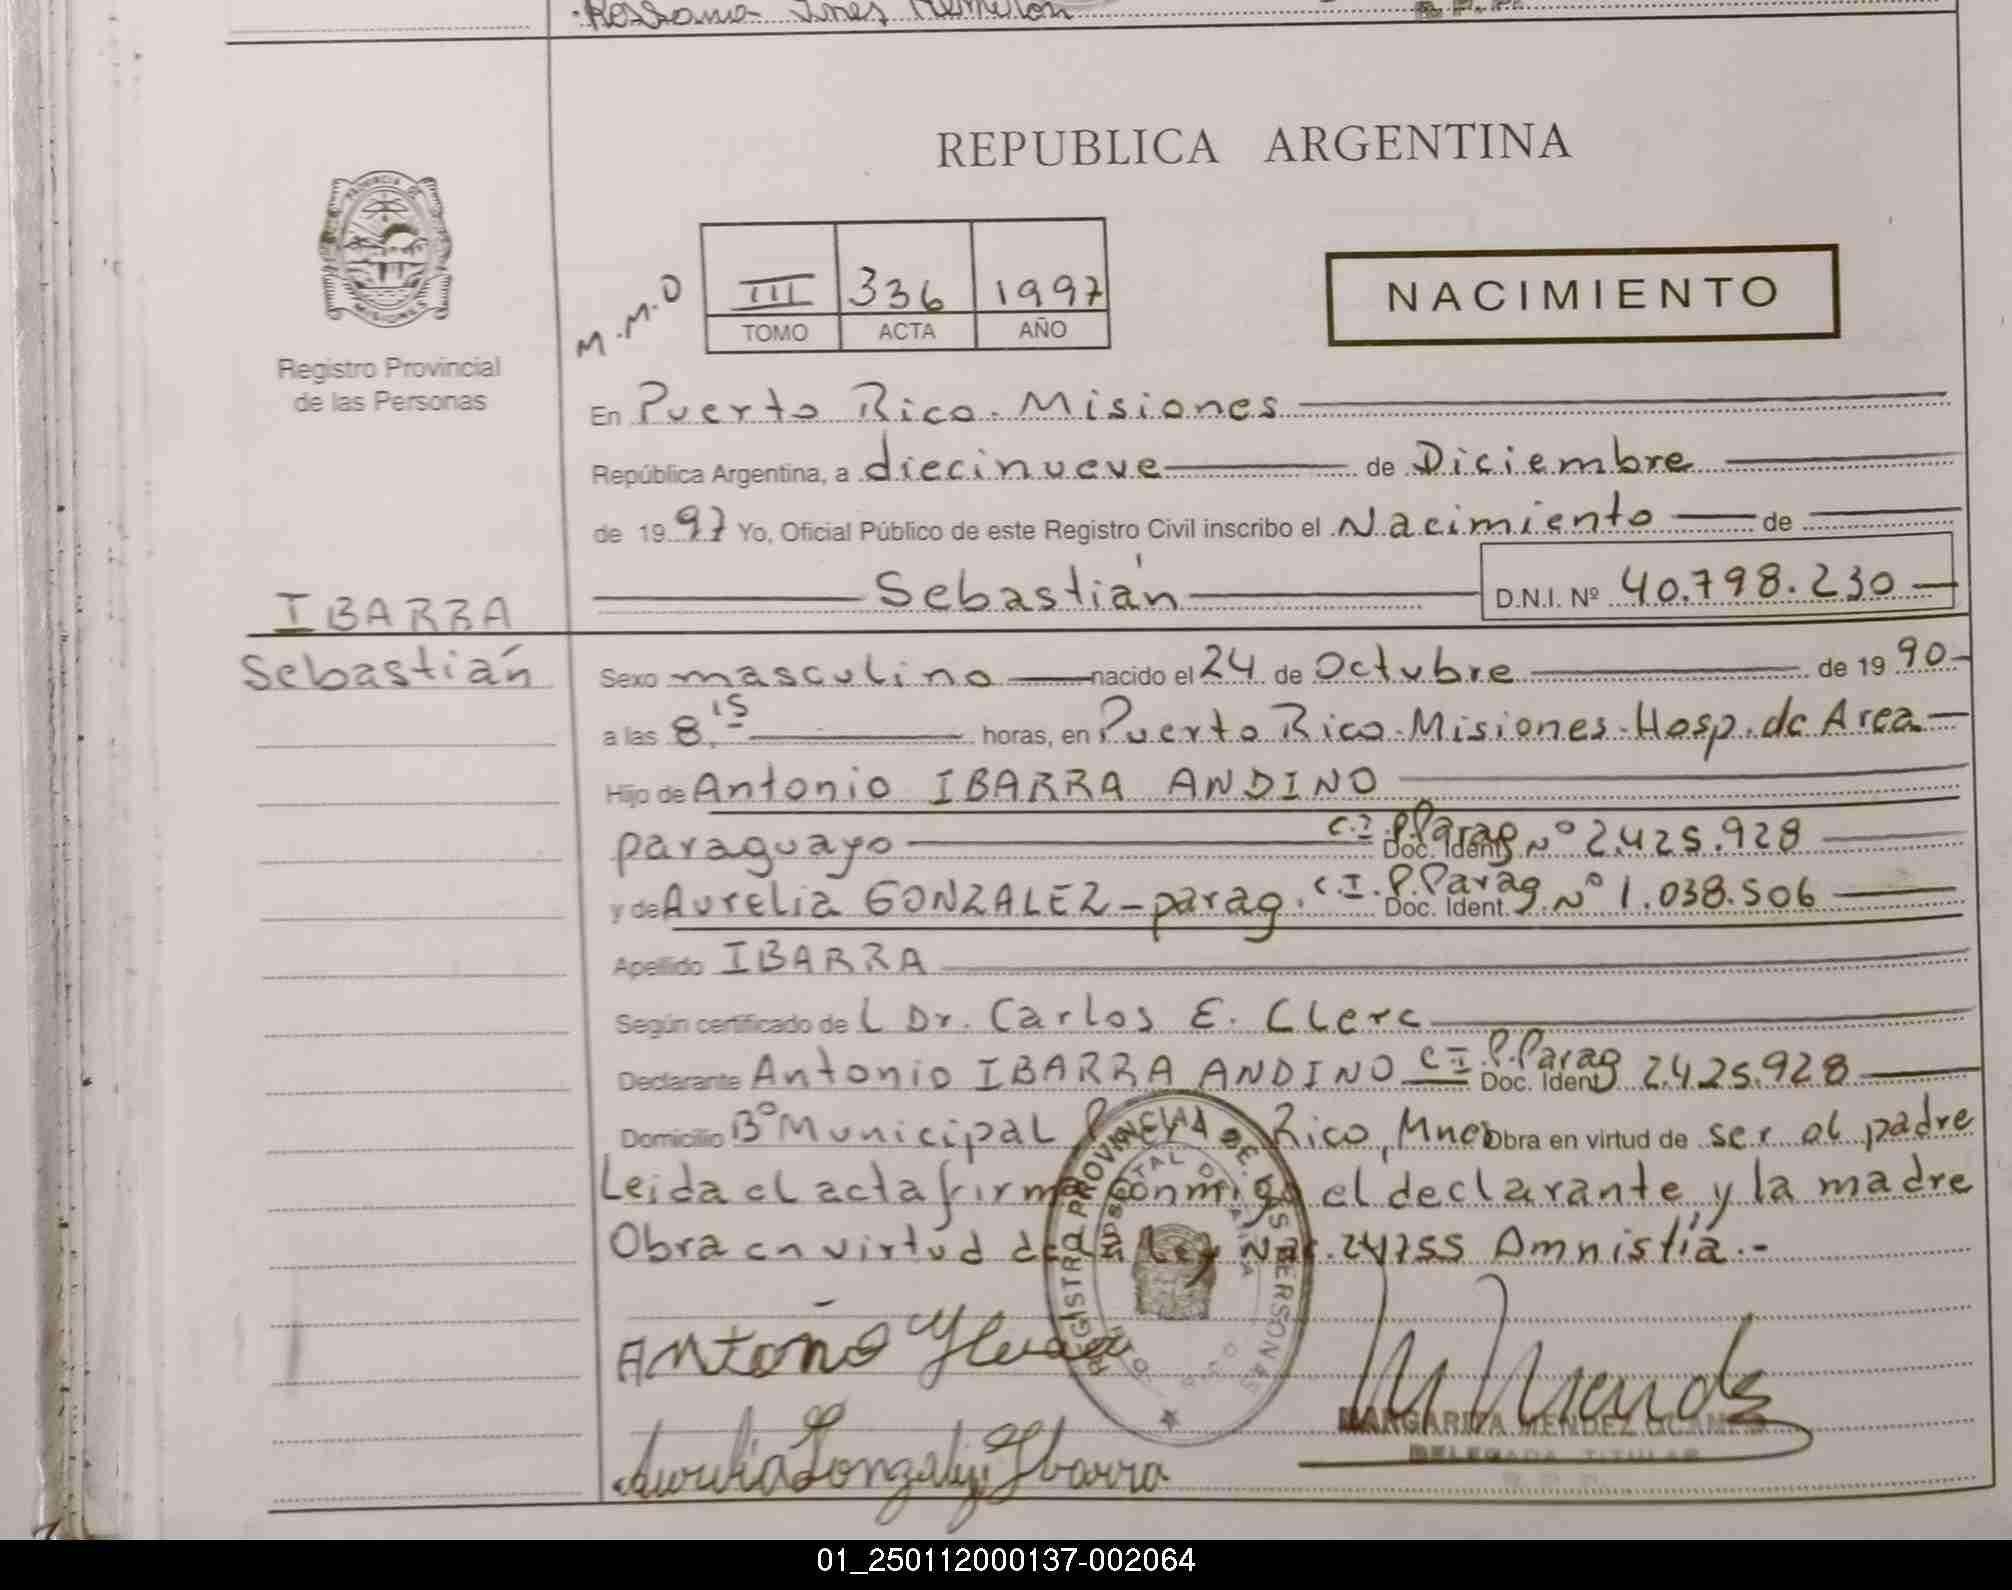 Rossana Ines
REPUBLICA ARGENTINA
PROVINCIA DE MISIONES
Registro Provincial
de las Personas
M.M.O
III 336 1997
TOMO ACTA AÑO
NACIMIENTO
En Puerto Rico. Misiones
República Argentina, a diecinueve de Diciembre
de 1997 Yo, Oficial Público de este Registro Civil inscribo el Nacimiento de
Sebastián D.N.I. Nº 40.798.230
IBARRA
Sebastián
Sexo masculino nacido el 24 de Octubre de 1990
a las 8,15 horas, en Puerto Rico. Misiones. Hosp. de Area
Hijo de Antonio IBARRA ANDINO
paraguayo C.I. P.Parag Doc. Ident Nº 2.425.928
y de Aurelia GONZALEZ - parag. C.I. P.Parag. Doc. Ident. Nº 1.038.506
Apellido IBARRA
Según certificado de L Dr. Carlos E. Clerc
Declarante Antonio IBARRA ANDINO CI P.Parag Doc. Ident 2.425.928
Domicilio Bº Municipal Rico, Mnes Obra en virtud de ser el padre
Leida el acta firma conmigo el declarante y la madre
Obra en virtud de la Ley Nac. 24755 Amnistía.-
REGISTRO PROVINCIAL DE LAS PERSONAS
Antonio Ibarra
Aurelia Gonzalez Ibarra
M Mende
MARGARITA MENDEZ OCAMPO
DELEGADA TITULAR
01_250112000137-002064